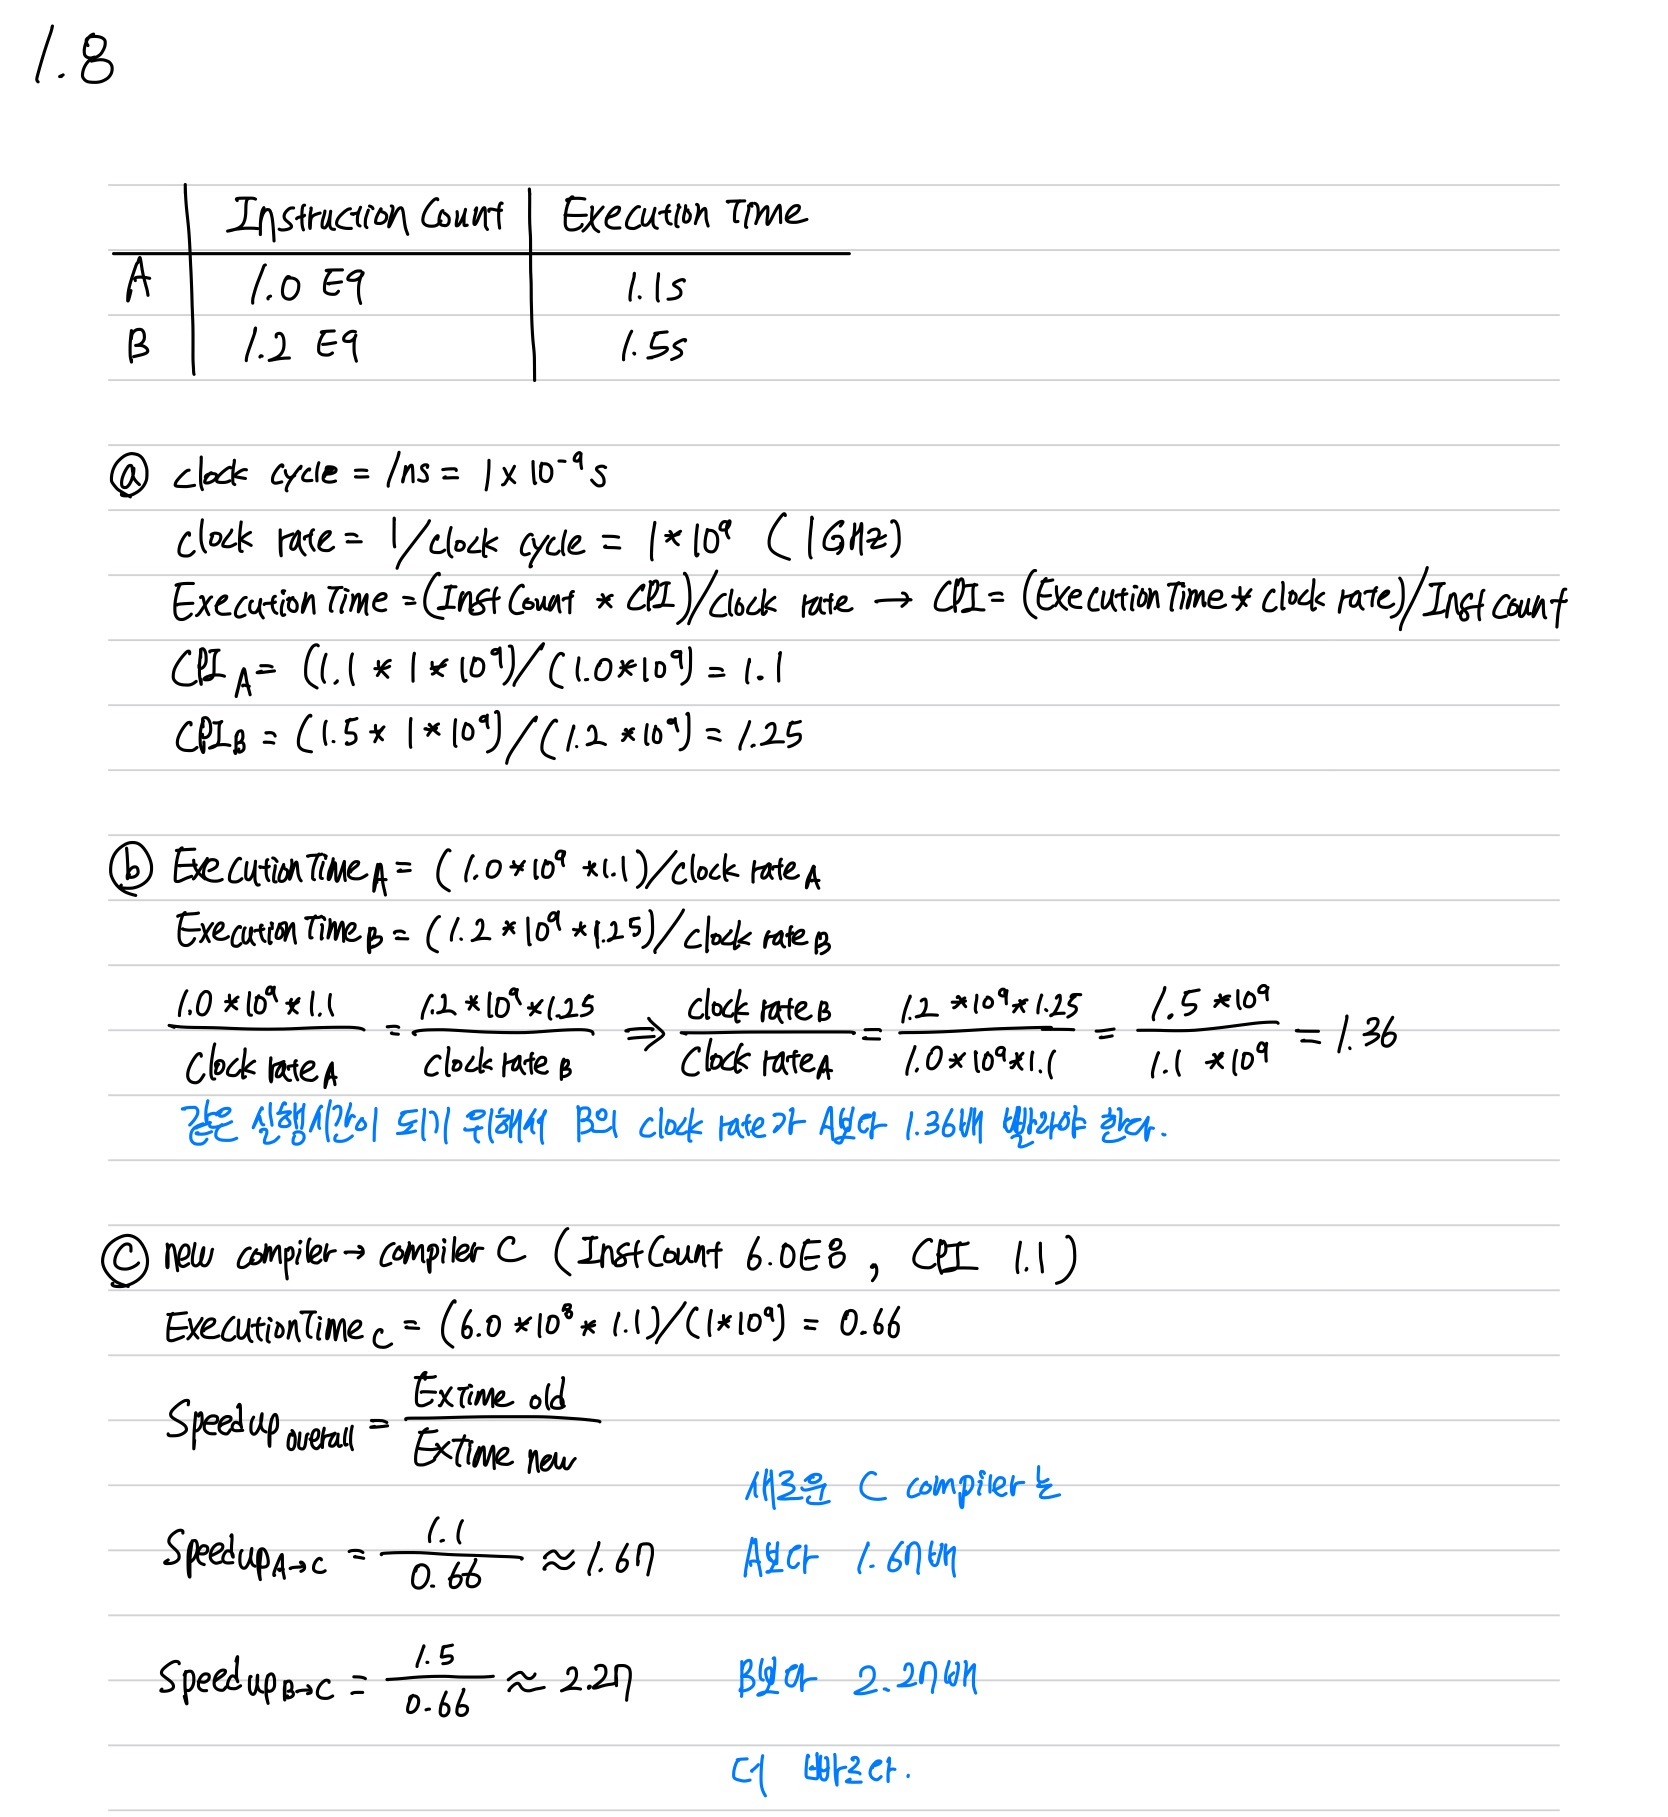 1.8
Instruction Count Execution Time
A 1.0 E9 1.1s
B 1.2 E9 1.5s
ⓐ clock cycle = 1ns = 1 x 10⁻⁹ s
clock rate = 1/clock cycle = 1*10⁹ (1GHz)
Execution Time = (Inst Count * CPI)/clock rate → CPI = (Execution Time * clock rate)/Inst Count
CPI_A = (1.1 * 1*10⁹)/(1.0*10⁹) = 1.1
CPI_B = (1.5 * 1*10⁹)/(1.2 *10⁹) = 1.25
ⓑ Execution Time_A = (1.0*10⁹ *1.1)/clock rate_A
Execution Time_B = (1.2*10⁹ *1.25)/clock rate_B
1.0*10⁹*1.1 / Clock rate_A = 1.2*10⁹*1.25 / clock rate_B ⇒ clock rate_B / Clock rate_A = 1.2*10⁹*1.25 / 1.0*10⁹*1.1 = 1.5*10⁹ / 1.1*10⁹ = 1.36
같은 실행시간이 되기 위해서 B의 clock rate가 A보다 1.36배 빨라야 한다.
ⓒ new compiler → compiler C (Inst Count 6.0E8, CPI 1.1)
Execution Time_C = (6.0*10⁸ * 1.1)/(1*10⁹) = 0.66
Speedup_overall = Extime old / Extime new
새로운 C compiler는
Speedup_A→C = 1.1 / 0.66 ≈ 1.67 A보다 1.67배
Speedup_B→C = 1.5 / 0.66 ≈ 2.27 B보다 2.27배
더 빠르다.